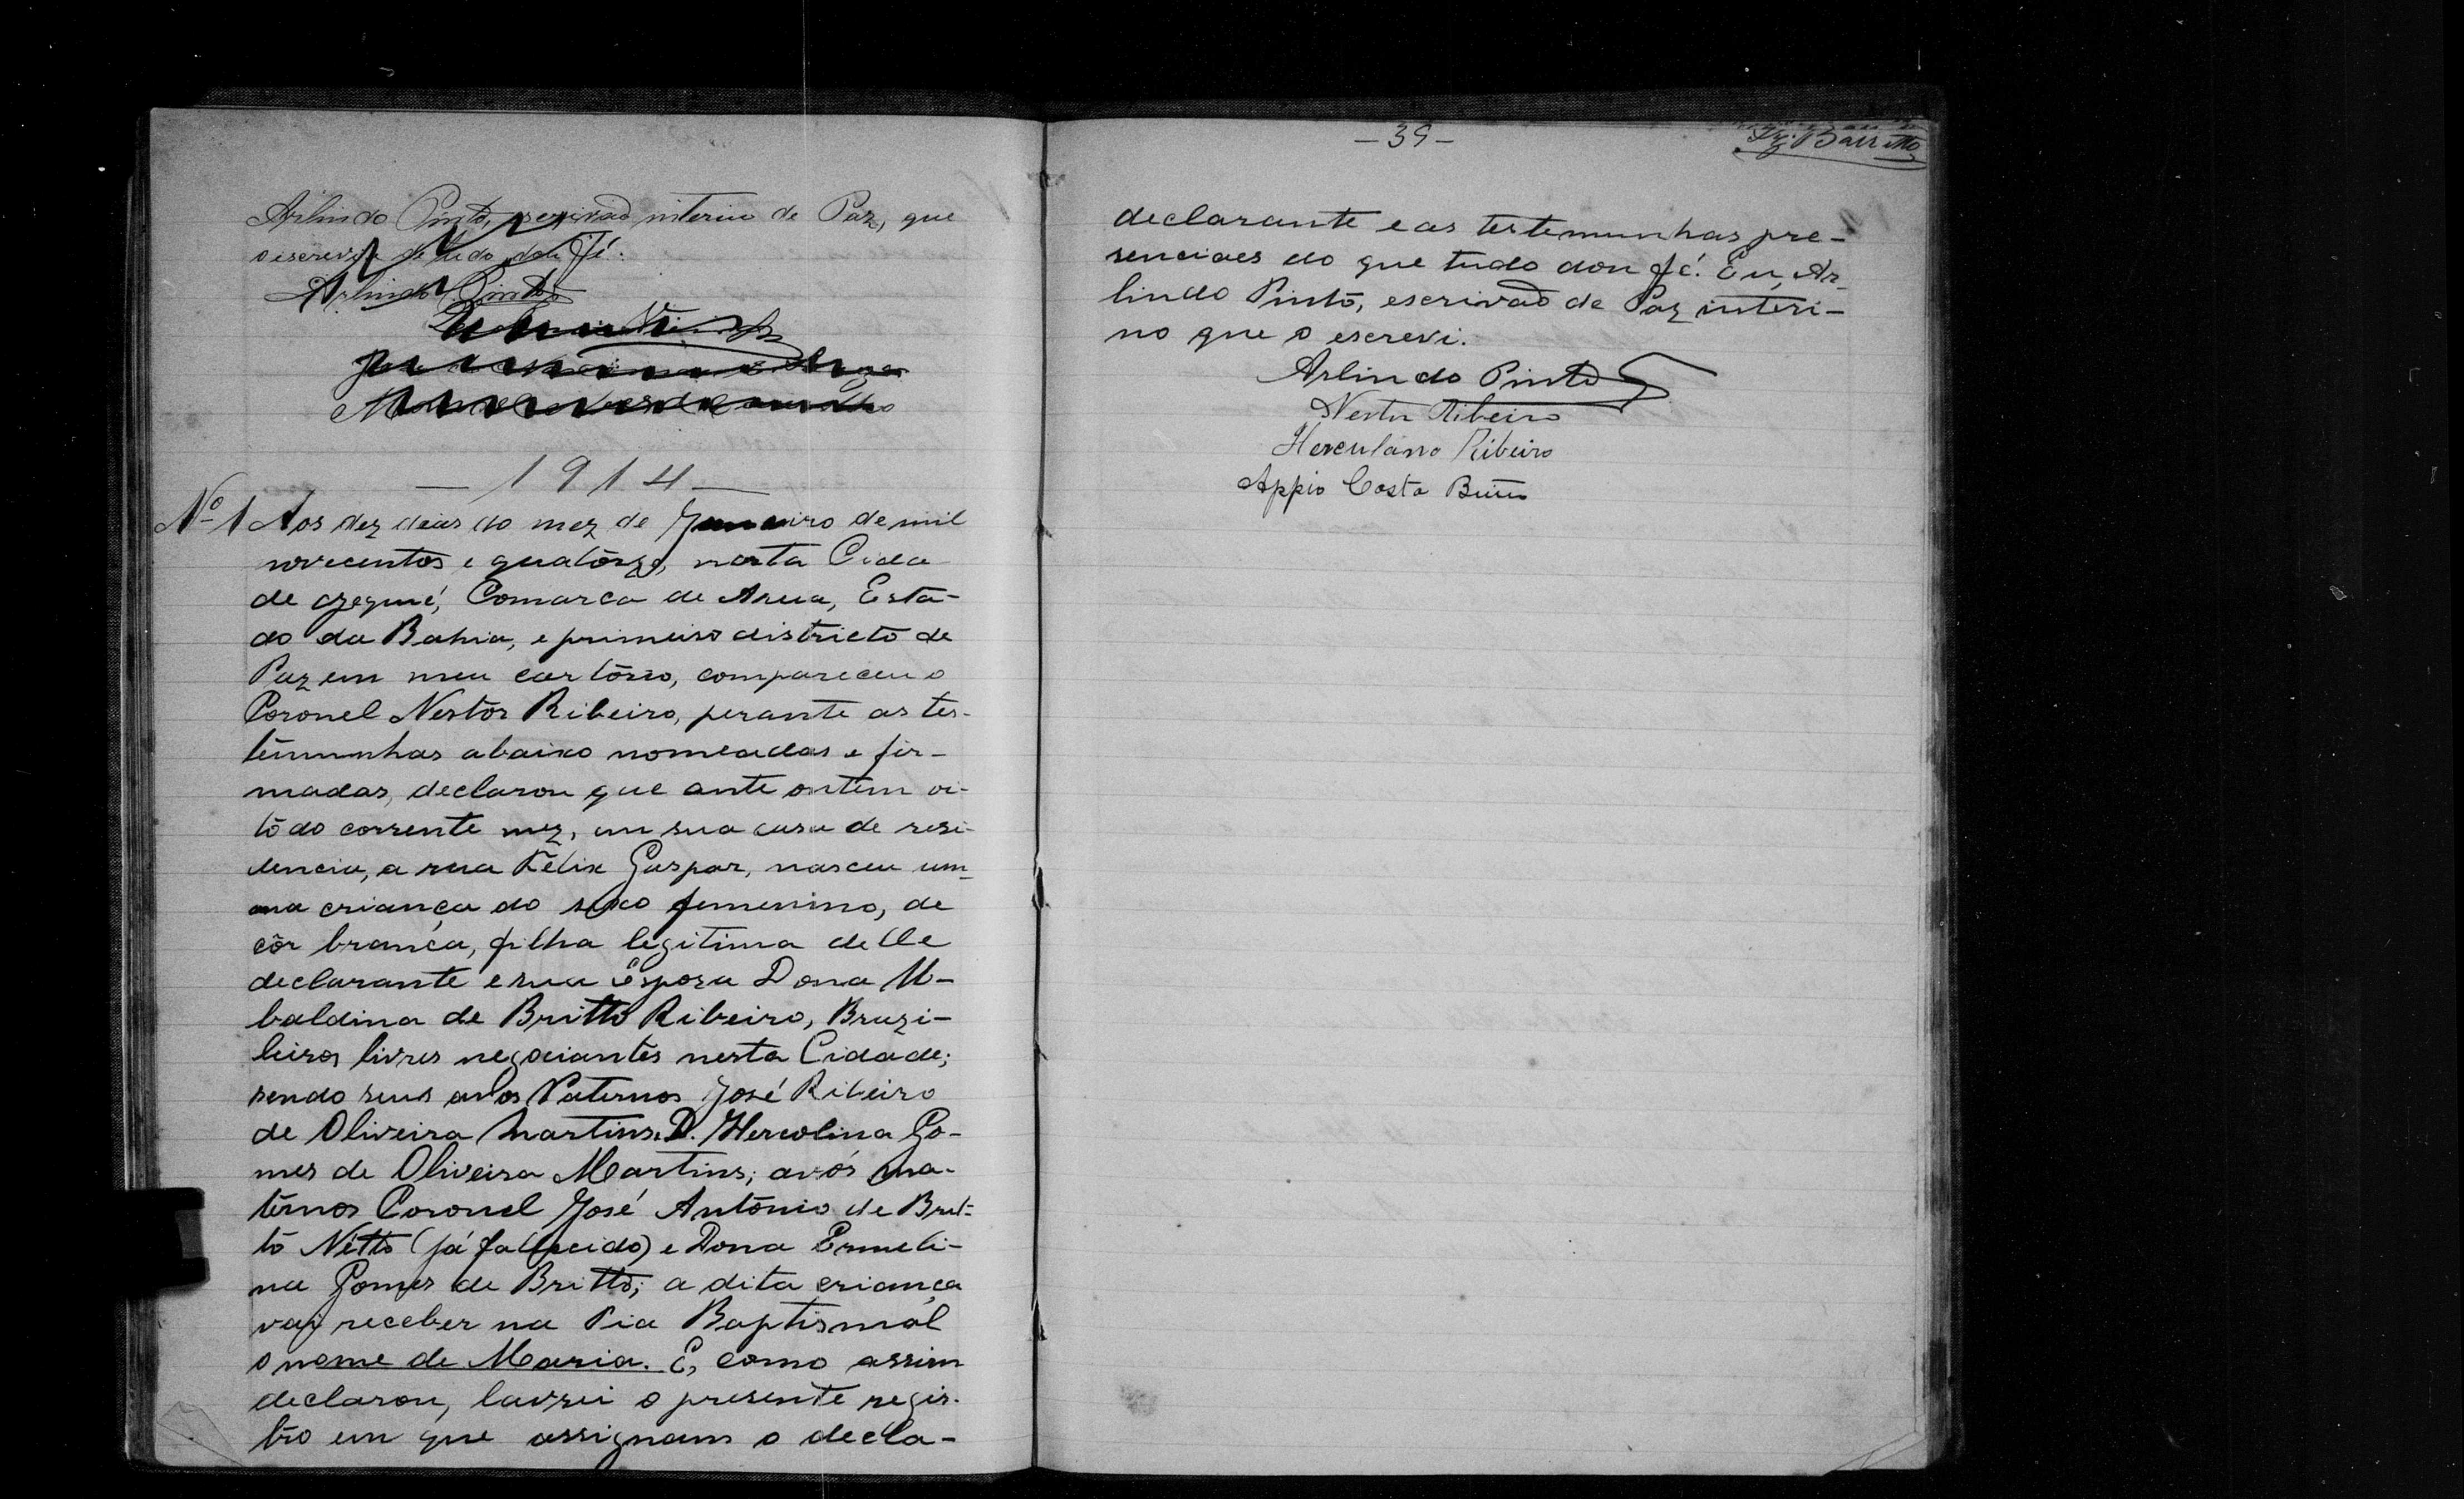 Arlindo Pinto, escrivão interino de Paz, que
o escrevi e de tudo dou fé.
Arlindo Pinto
— 1914 —
Nº 1 Aos dez dias do mez de Janeiro de mil
novecentos e quatorze, nesta Cida
de Jequié, Comarca de Areia, Esta-
do da Bahia, e primeiro districto de
Paz em meu cartório, compareceu o
Coronel Nestor Ribeiro, perante as tes-
temunhas abaixo nomeadas e fir-
madas, declarou que ante ontem oi-
to do corrente mez, em sua casa de resi-
dencia, a rua Félix Gaspar, nasceu um-
ma criança do sexo femenino, de
côr branca, filha legitima delle
declarante e sua espoza Dona U-
baldina de Britto Ribeiro, Brazi-
leiros livres negociantes nesta Cidade;
sendo seus avós Paternos José Ribeiro
de Oliveira Martins e D. Hercolina Go-
mes de Oliveira Martins; avós ma-
ternos Coronel José Antonio de Brit-
to Netto (já fallecido) e Dona Ermeli-
na Gomes de Britto; a dita criança
vai receber na Pia Baptismal
o nome de Maria. E, como assim
declarou, lavrei o presente regis-
tro em que assignam o decla-
— 39 —
Barretto
declarante e as testemunhas pre-
senciaes do que tudo dou fé. Eu, Ar-
lindo Pinto, escrivão de Paz interi-
no que o escrevi.
Arlindo Pinto
Nestor Ribeiro
Herculano Ribeiro
Appio Costa